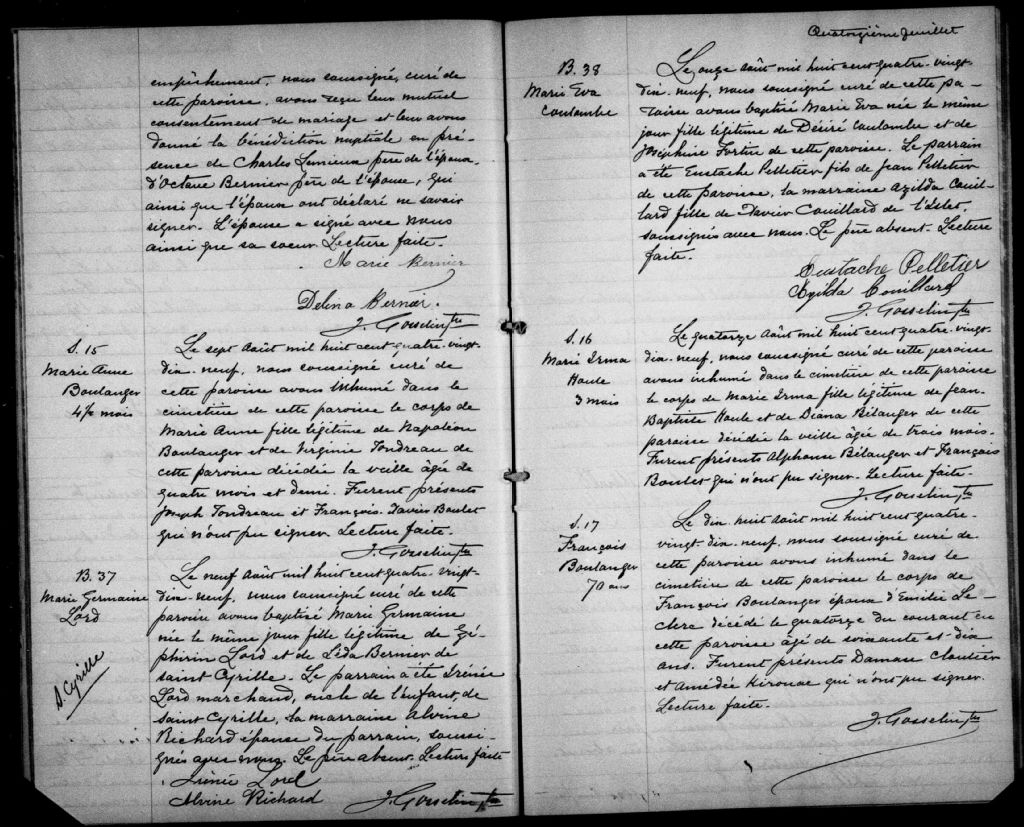 empêchement, nous soussigné, curé de
cette paroisse, avons reçu leur mutuel
consentement de mariage et leur avons
donné la bénédiction nuptiale en pré-
sence de Charles Lemieux père de l'époux,
d'Octave Bernier père de l'épouse, qui
ainsi que l'époux ont déclaré ne savoir
signer. L'épouse a signé avec nous
ainsi que sa soeur. Lecture faite.
Marie Bernier
Delina Bernier.
J. Gosselin Ptre
S. 15
Marie Anne
Boulanger
4½ mois
Le sept août mil huit cent quatre-vingt-
dix-neuf, nous soussigné curé de
cette paroisse avons inhumé dans le
cimetière de cette paroisse le corps de
Marie Anne fille légitime de Napoléon
Boulanger et de Virginie Tondreau de
cette paroisse décédée la veille âgée de
quatre mois et demi. Furent présents
Joseph Tondreau et François-Xavier Boulet
qui n'ont pu signer. Lecture faite.
J. Gosselin Ptre
B. 37
Marie Germaine
Lord
St Cyrille
Le neuf août mil huit cent quatre-vingt-
dix-neuf, nous soussigné curé de cette
paroisse avons baptisé Marie Germaine
née le même jour fille légitime de Zé-
phirin Lord et de Léda Bernier de
saint Cyrille. Le parrain a été Irénée
Lord marchand, oncle de l'enfant de
saint Cyrille, la marraine Alvine
Richard épouse du parrain, soussi-
gnés avec nous. Le père absent. Lecture faite
Irénée Lord
Alvine Richard
J. Gosselin Ptre
Quatorzième feuillet
B. 38
Marie Eva
Coulombe
Le onze août mil huit cent quatre-vingt-
dix-neuf, nous soussigné curé de cette pa-
roisse avons baptisé Marie Eva née le même
jour fille légitime de Désiré Coulombe et de
Joséphine Fortin de cette paroisse. Le parrain
a été Eustache Pelletier fils de Jean Pelletier
de cette paroisse, la marraine Azilda Couil-
lard fille de Xavier Couillard de l'Islet,
soussignés avec nous. Le père absent. Lecture
faite.
Eustache Pelletier
Azilda Couillard
J. Gosselin Ptre
S. 16
Marie Irma
Houle
3 mois
Le quatorze août mil huit cent quatre-vingt-
dix-neuf, nous soussigné curé de cette paroisse
avons inhumé dans le cimetière de cette paroisse
le corps de Marie Irma fille légitime de Jean-
Baptiste Houle et de Diana Bélanger de cette
paroisse décédée la veille âgée de trois mois.
Furent présents Alphonse Bélanger et François
Boulet qui n'ont pu signer. Lecture faite.
J. Gosselin Ptre
S. 17
François
Boulanger
70 ans
Le dix-huit août mil huit cent quatre-
vingt-dix-neuf, nous soussigné curé de
cette paroisse avons inhumé dans le
cimetière de cette paroisse le corps de
François Boulanger époux d'Emilie Le-
clerc décédé le quatorze du courant en
cette paroisse âgé de soixante et dix
ans. Furent présents Damase Cloutier
et Amédée Kirouac qui n'ont pu signer.
Lecture faite.
J. Gosselin Ptre